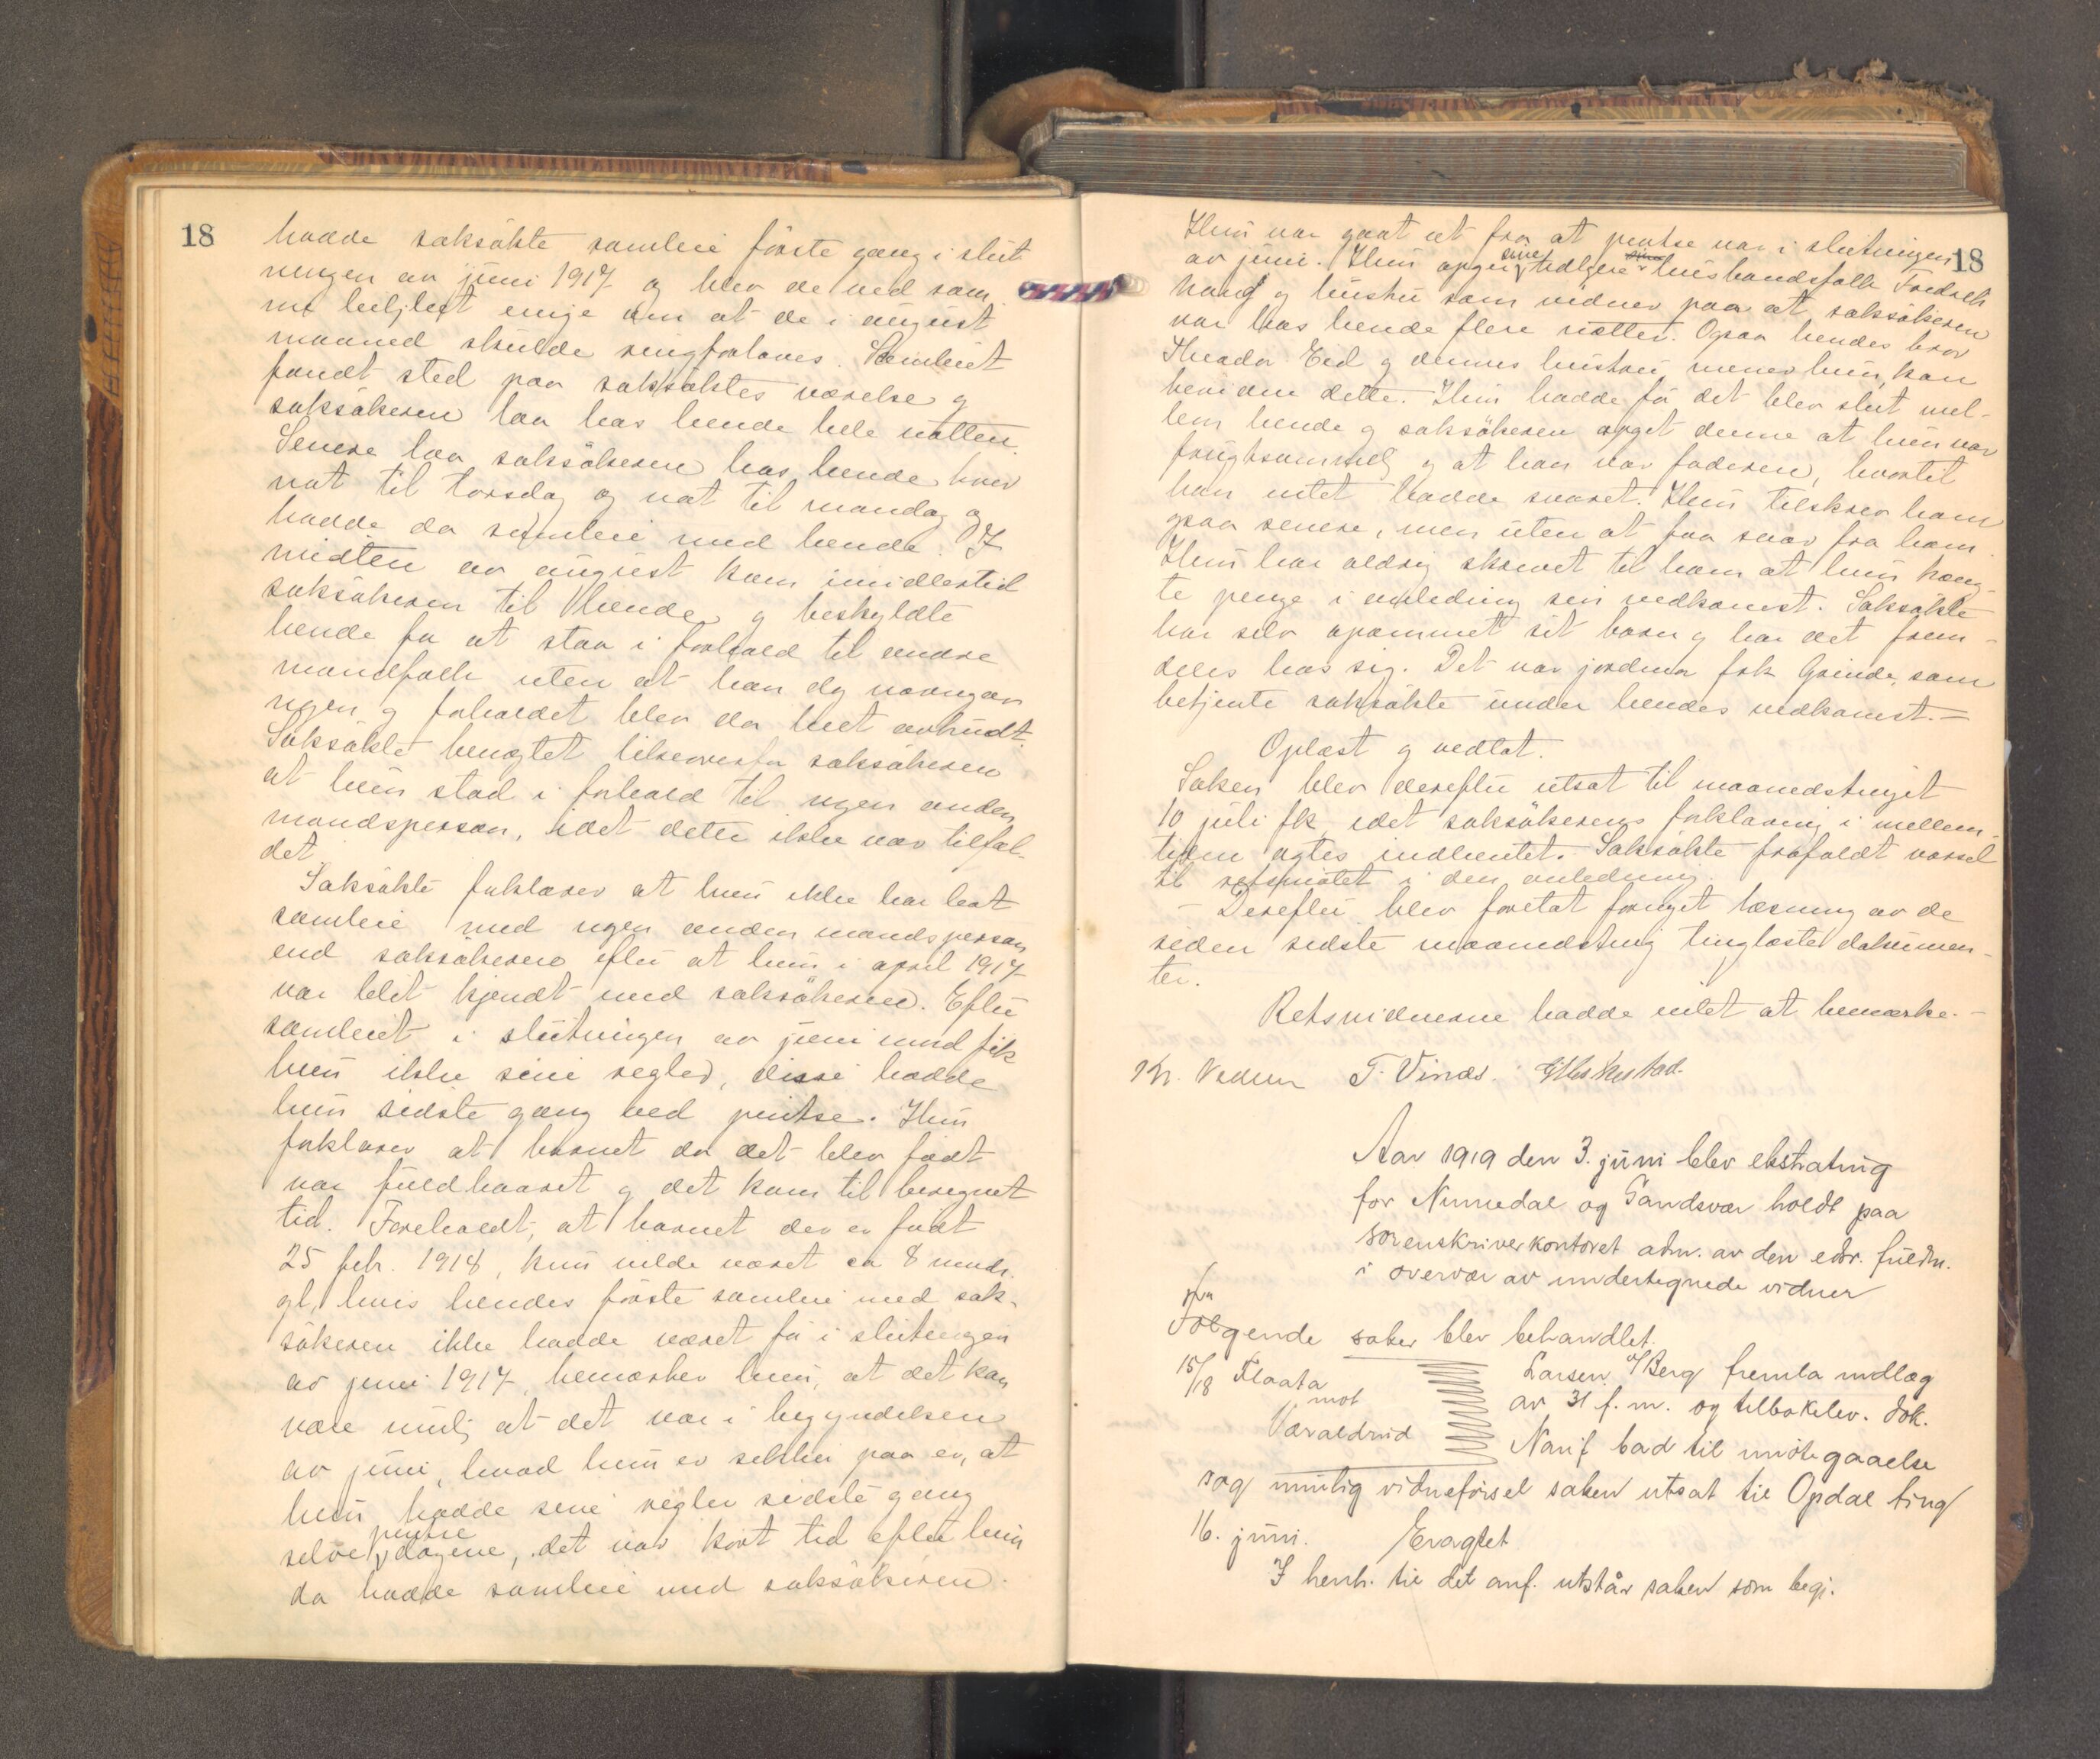 18
hadde saksökte samleie förste gang i slut
ningen av juni 1917 og blev de ved sam
me leilighet enige om at de i august
maaned skulde ringforloves. Samleiet
fandt sted paa saksöktes værelse og
saksökeren laa hos hende hele natten.
Senere laa saksökeren hos hende hver
nat til torsdag og nat til mandag og
hadde da samleie med hende. I
midten av august kom imidlertid
saksökeren til hende og beskyldte
hende for at staa i forhold til andre
mandfolk uten at han dog navngav
nogen og forholdet blev da hævet
Saksökte benegtet likeoverfor saksökeren
at hun stod i forhold til nogen anden
mandsperson, idet dette ikke var tilfæl-
det.
Saksökte forklarer at hun ikke har hat
samleie med nogen anden mandsperson
end saksökeren efter at hun i april 1917
var blit kjendt med saksökeren. Efter
samleiet i slutningen av juni md fik
hun ikke sine regler, disse hadde
hun sidste gang ved pintse. Hun
forklarer at barnet da det blev født
var fuldbaaret og det kom til beregnet
tid. Foreholdt, at barnet der er født
25 febr. 1918, kun vilde været ca 8 mndr.
gl, hvis hendes förste samleie med sak-
sökeren ikke hadde været før i slutningen
av juni 1917, bemærker hun, at det kan
være mulig at det var i begyndelsen
av juni, hvad hun er sikker paa er, at
hun hadde sine regler sidste gang
selve pintsedagene, det var kort tid efter hun
da hadde samleie med saksökeren.
18
Hun var gaat ut fra at pintse var i slutningen
av juni. Hun opgir sine tidligere husbondsfolk Fredrik
Haug og hustru som vidner paa at saksökeren
var hos hende flere nætter. Ogsaa hendes bror
Theodor Eid og dennes hustru, mener hun, kan
bevidne dette. Hun hadde før det blev slut mel-
lem hende og saksökeren sagt denne at hun var
frugtsommelig og at han var faderen, hvortil
han intet hadde svaret. Hun tilskrev ham
ogsaa senere, men uten at faa svar fra ham.
Hun har aldrig skrevet til ham at hun træng
te penge i anledning sin nedkomst. Saksökte
har selv opammet sit barn og har det frem-
deles hos sig. Det var jordmor frk Grinde, som
betjente saksökte under hendes nedkomst.-
Oplæst og vedtat.
Saken blev derefter utsat til maanedstinget
10 juli fk, idet saksökerens forklaring i mellem-
tiden agtes indhentet. Saksökte frafaldt varsel
til retsmötet i den anledning.
- Derefter blev foretat forøget læsning av de
siden sidste maanedsting tinglæste dokumen-
ter.
Retsvidnerne hadde intet at bemærke.-
T. Vinæs.
Aar 1919 den 3. juni blev ekstrating
for Numedal og Sandsvær holdt paa
sorenskriverkontoret adm. av den edsv. fuldm.
i overvær av undertegnede vidner
Følgende saker blev behandlet.
15/18 Flaata
mot
Væraldrud
Larsen f/Berg fremla indlæg
av 31 f. m. og tilbakelev. dok.
Narif bad til imötegaaelse
og mulig vidneförsel saken utsat til Opdal ting
16. juni. Eragtet
I henh. til det anf. utstår saken som begj.